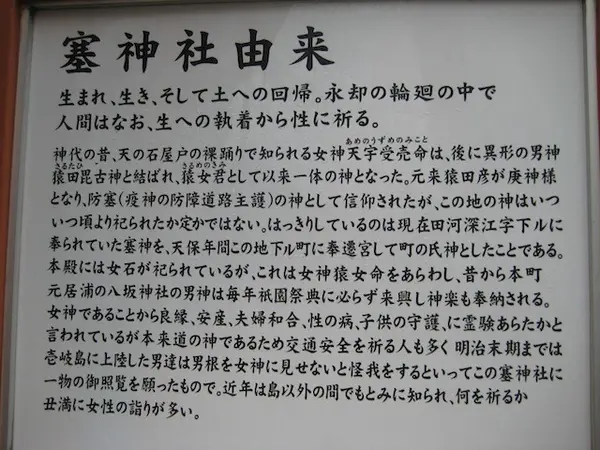 塞神社由来
生まれ、生き、そして土への回帰。永却の輪廻の中で
人間はなお、生への執着から性に祈る。
あめのうずめのみこと
神代の昔、天の石屋戸の裸踊りで知られる女神天宇受売命は、後に異形の男神
さるたひ　さるめのきみ
猿田毘古神と結ばれ、猿女君として以来一体の神となった。元来猿田彦が庚神様
となり、防塞(疫神の防障道路主護)の神として信仰されたが、この地の神はいつ
いつ頃より祀られたか定かではない。はっきりしているのは現在田河深江字下ルに
奉られていた塞神を、天保年間この地下ル町に奉遷宮して町の氏神としたことである。
本殿には女石が祀られているが、これは女神猿女命をあらわし、昔から本町
元居浦の八坂神社の男神は毎年祇園祭典に必らず来興し神楽も奉納される。
女神であることから良縁、安産、夫婦和合、性の病、子供の守護、に霊験あらたかと
言われているが本来道の神であるため交通安全を祈る人も多く 明治末期までは
壱岐島に上陸した男達は男根を女神に見せないと怪我をするといってこの塞神社に
一物の御照覧を願ったもので。近年は島以外の間でもとみに知られ、何を祈るか
丑満に女性の詣りが多い。